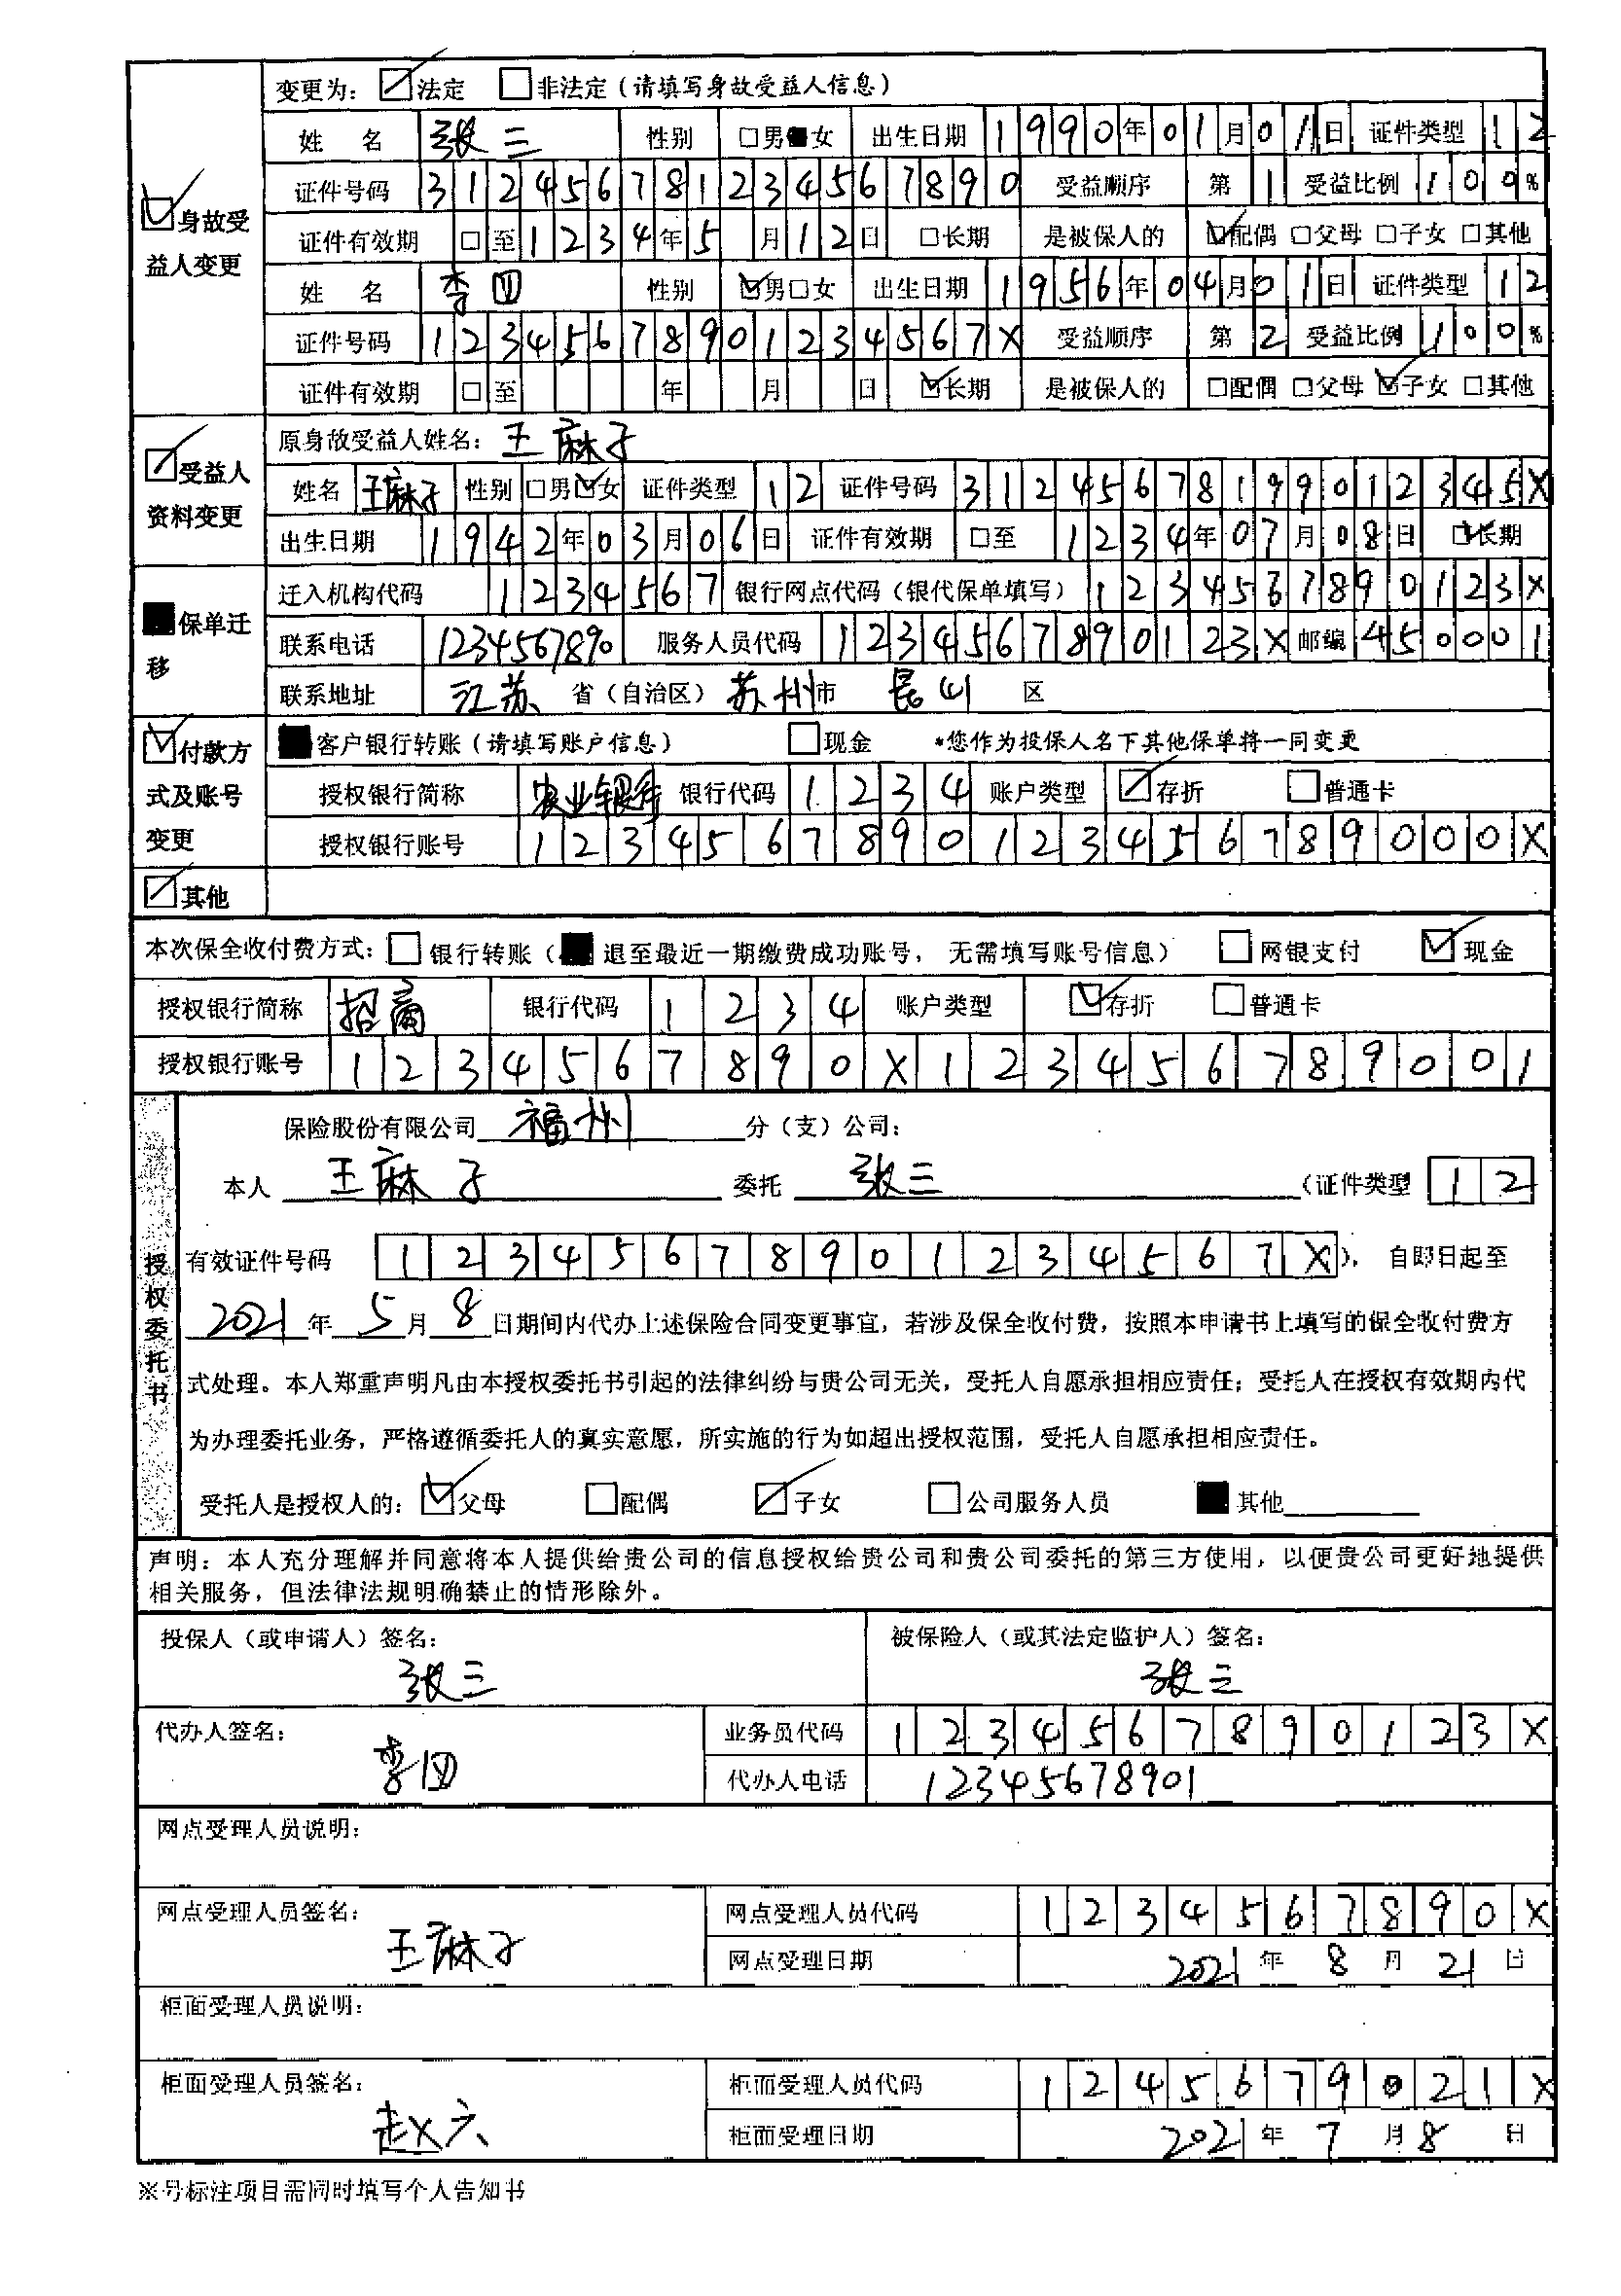 变更为： ☑法定 □非法定（请填写身故受益人信息）
☑身故受益人变更
姓 名 张三 性别 □男■女 出生日期 1990年01月01日 证件类型 12
证件号码 312456781234567890 受益顺序 第1 受益比例 100%
证件有效期 □至1234年5月12日 □长期 是被保人的 ☑配偶 □父母 □子女 □其他
姓 名 李四 性别 ☑男□女 出生日期 1956年04月01日 证件类型 12
证件号码 12345678901234567X 受益顺序 第2 受益比例 100%
证件有效期 □至 年 月 日 ☑长期 是被保人的 □配偶 □父母 ☑子女 □其他
☑受益人资料变更
原身故受益人姓名：王麻子
姓名 王麻子 性别 □男☑女 证件类型 12 证件号码 31245678199012345X
出生日期 1942年03月06日 证件有效期 □至 1234年07月08日 ☑长期
■保单迁移
迁入机构代码 1234567 银行网点代码（银代保单填写） 1234567890123X
联系电话 1234567890 服务人员代码 1234567890123X 邮编 450001
联系地址 江苏 省（自治区） 苏州市 昆山 区
☑付款方式及账号变更
■客户银行转账（请填写账户信息） □现金 *您作为投保人名下其他保单将一同变更
授权银行简称 农业银行 银行代码 1234 账户类型 ☑存折 □普通卡
授权银行账号 1234567890123456789000X
☑其他
本次保全收付费方式：□银行转账（■退至最近一期缴费成功账号， 无需填写账号信息） □网银支付 ☑现金
授权银行简称 招商 银行代码 1234 账户类型 ☑存折 □普通卡
授权银行账号 1234567890X123456789001
授权委托书
保险股份有限公司 福州 分（支）公司：
本人 王麻子 委托 张三 （证件类型 12
有效证件号码 12345678901234567X）， 自即日起至
2021 年 5 月 8 日期间内代办上述保险合同变更事宜，若涉及保全收付费，按照本申请书上填写的保全收付费方
式处理。本人郑重声明凡由本授权委托书引起的法律纠纷与贵公司无关，受托人自愿承担相应责任；受托人在授权有效期内代
为办理委托业务，严格遵循委托人的真实意愿，所实施的行为如超出授权范围，受托人自愿承担相应责任。
受托人是授权人的：☑父母 □配偶 ☑子女 □公司服务人员 ■其他
声明：本人充分理解并同意将本人提供给贵公司的信息授权给贵公司和贵公司委托的第三方使用，以便贵公司更好地提供
相关服务，但法律法规明确禁止的情形除外。
投保人（或申请人）签名： 张三 被保险人（或其法定监护人）签名： 张三
代办人签名： 李四 业务员代码 1234567890123X
代办人电话 12345678901
网点受理人员说明：
网点受理人员签名： 王麻子 网点受理人员代码 1234567890X
网点受理日期 2021 年 8 月 21 日
柜面受理人员说明：
柜面受理人员签名： 赵六 柜面受理人员代码 1245679021X
柜面受理日期 2021 年 7 月 8 日
※号标注项目需同时填写个人告知书